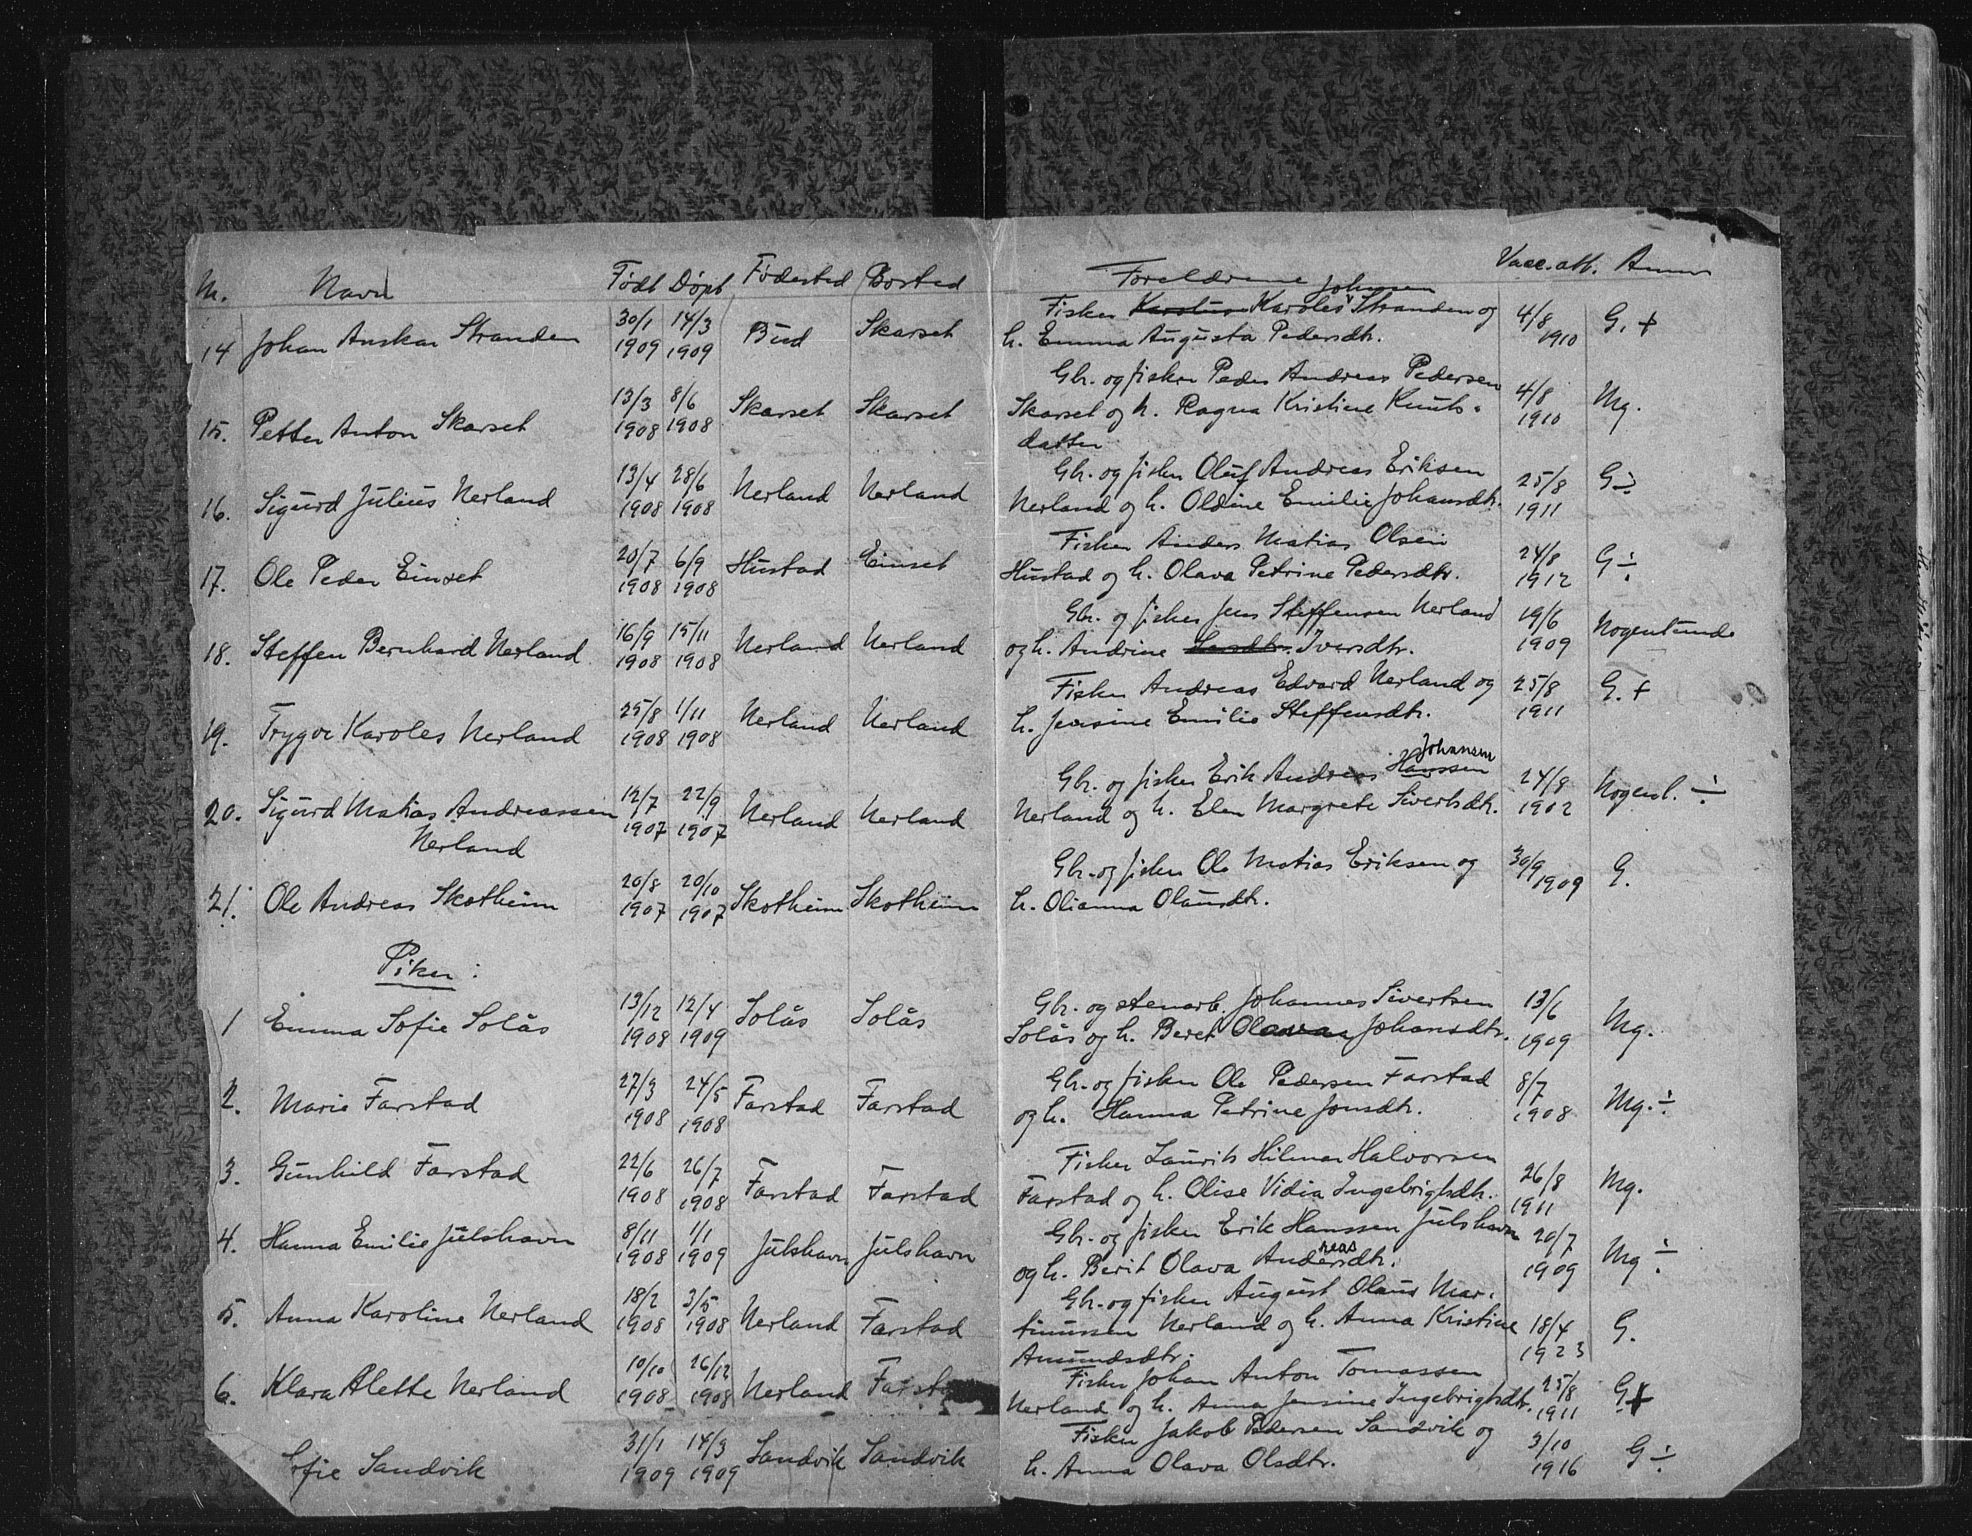 N. Navn Født Døpt Fødested Bosted Foreldrene Vacc.att. Anm
14 Johan Anskar Stranden 30/1 1909 14/3 1909 Bud Skarset Fisker Karoles Johnsen Stranden og 4/8 1910 G. +
h. Emma Augusta Pedersdtr.
15. Petter Anton Skarset 13/3 1908 8/6 1908 Skarset Skarset Gbr. og fisker Peder Andreas Pedersen 4/8 1910 Mg.
Skarset og h. Ragna Kristine Knuts-
datter
16. Sigurd Julius Nerland 13/4 1908 28/6 1908 Nerland Nerland Gbr. og fisker Oluf Andreas Eriksen 25/8 1911 G ÷
Nerland og h. Oldine Emilie Johansdtr.
17. Ole Peder Einset 20/7 1908 6/9 1908 Hustad Einset Fisker Anders Matias Olsen 24/8 1912 G ÷
Hustad og h. Olava Petrine Pedersdtr.
18. Steffen Bernhard Nerland 16/9 1908 15/11 1908 Nerland Nerland Gbr. og fisker Jens Steffensen Nerland 19/6 1909 Nogenlunde
og h. Andrine Iversdtr.
19. Trygve Karoles Nerland 25/8 1908 1/11 1908 Nerland Nerland Fisker Andreas Edvard Nerland og 25/8 1911 G. +
h. Jensine Emilie Steffensdtr.
20. Sigurd Matias Andreassen 12/7 1907 22/9 1907 Nerland Nerland Gbr. og fisker Erik Andreas Hanssen Johansen 24/8 1902 Nogenl. ÷
Nerland Nerland og h. Elen Margrete Sivertsdtr.
21. Ole Andreas Skotheim 20/8 1907 20/10 1907 Skotheim Skotheim Gbr. og fisker Ole Matias Eriksen og 30/9 1909 G.
h. Olianna Olausdtr.
Piker:
1 Emma Sofie Solås 13/12 1908 12/4 1909 Solås Solås Gbr. og stenarb. Johannes Sivertsen 13/6 1909 Mg.
Solås og h. Beret Johansdtr.
2. Marie Farstad 27/3 1908 24/5 1908 Farstad Farstad Gbr. og fisker Ole Pedersen Farstad 8/7 1908 Mg. ÷
og h. Hanna Petrine Jonsdtr.
3. Gunhild Farstad 22/6 1908 26/7 1908 Farstad Farstad Fisker Laurits Hilmar Halvorsen 26/8 1911 Mg.
Farstad og h. Olise Vidia Ingebrigtsdtr.
4. Hanna Emilie Julshavn 8/11 1908 1/1 1909 Julshavn Julshavn Gbr. og fisker Erik Hanssen Julshavn 20/7 1909 Mg ÷
og h. Berit Olava Andreasdtr.
5. Anna Karoline Nerland 18/2 1908 3/5 1908 Nerland Farstad Gbr. og fisker August Olaus Mar-
tinussen Nerland og h. Anna Kristine 18/4 1923 G.
Amundsdtr.
6. Klara Alette Nerland 10/10 1908 26/12 1908 Nerland Farst Fisker Johan Anton Tomassen 25/8 1911 G +
Nerland og h. Anna Jensine Ingebrigtsdtr.
Sofie Sandvik 31/1 1909 14/3 1909 Sandvik Sandvik Fisker Jakob Pedersen Sandvik og 3/10 1916 G ÷
h. Anna Olava Olsdtr.